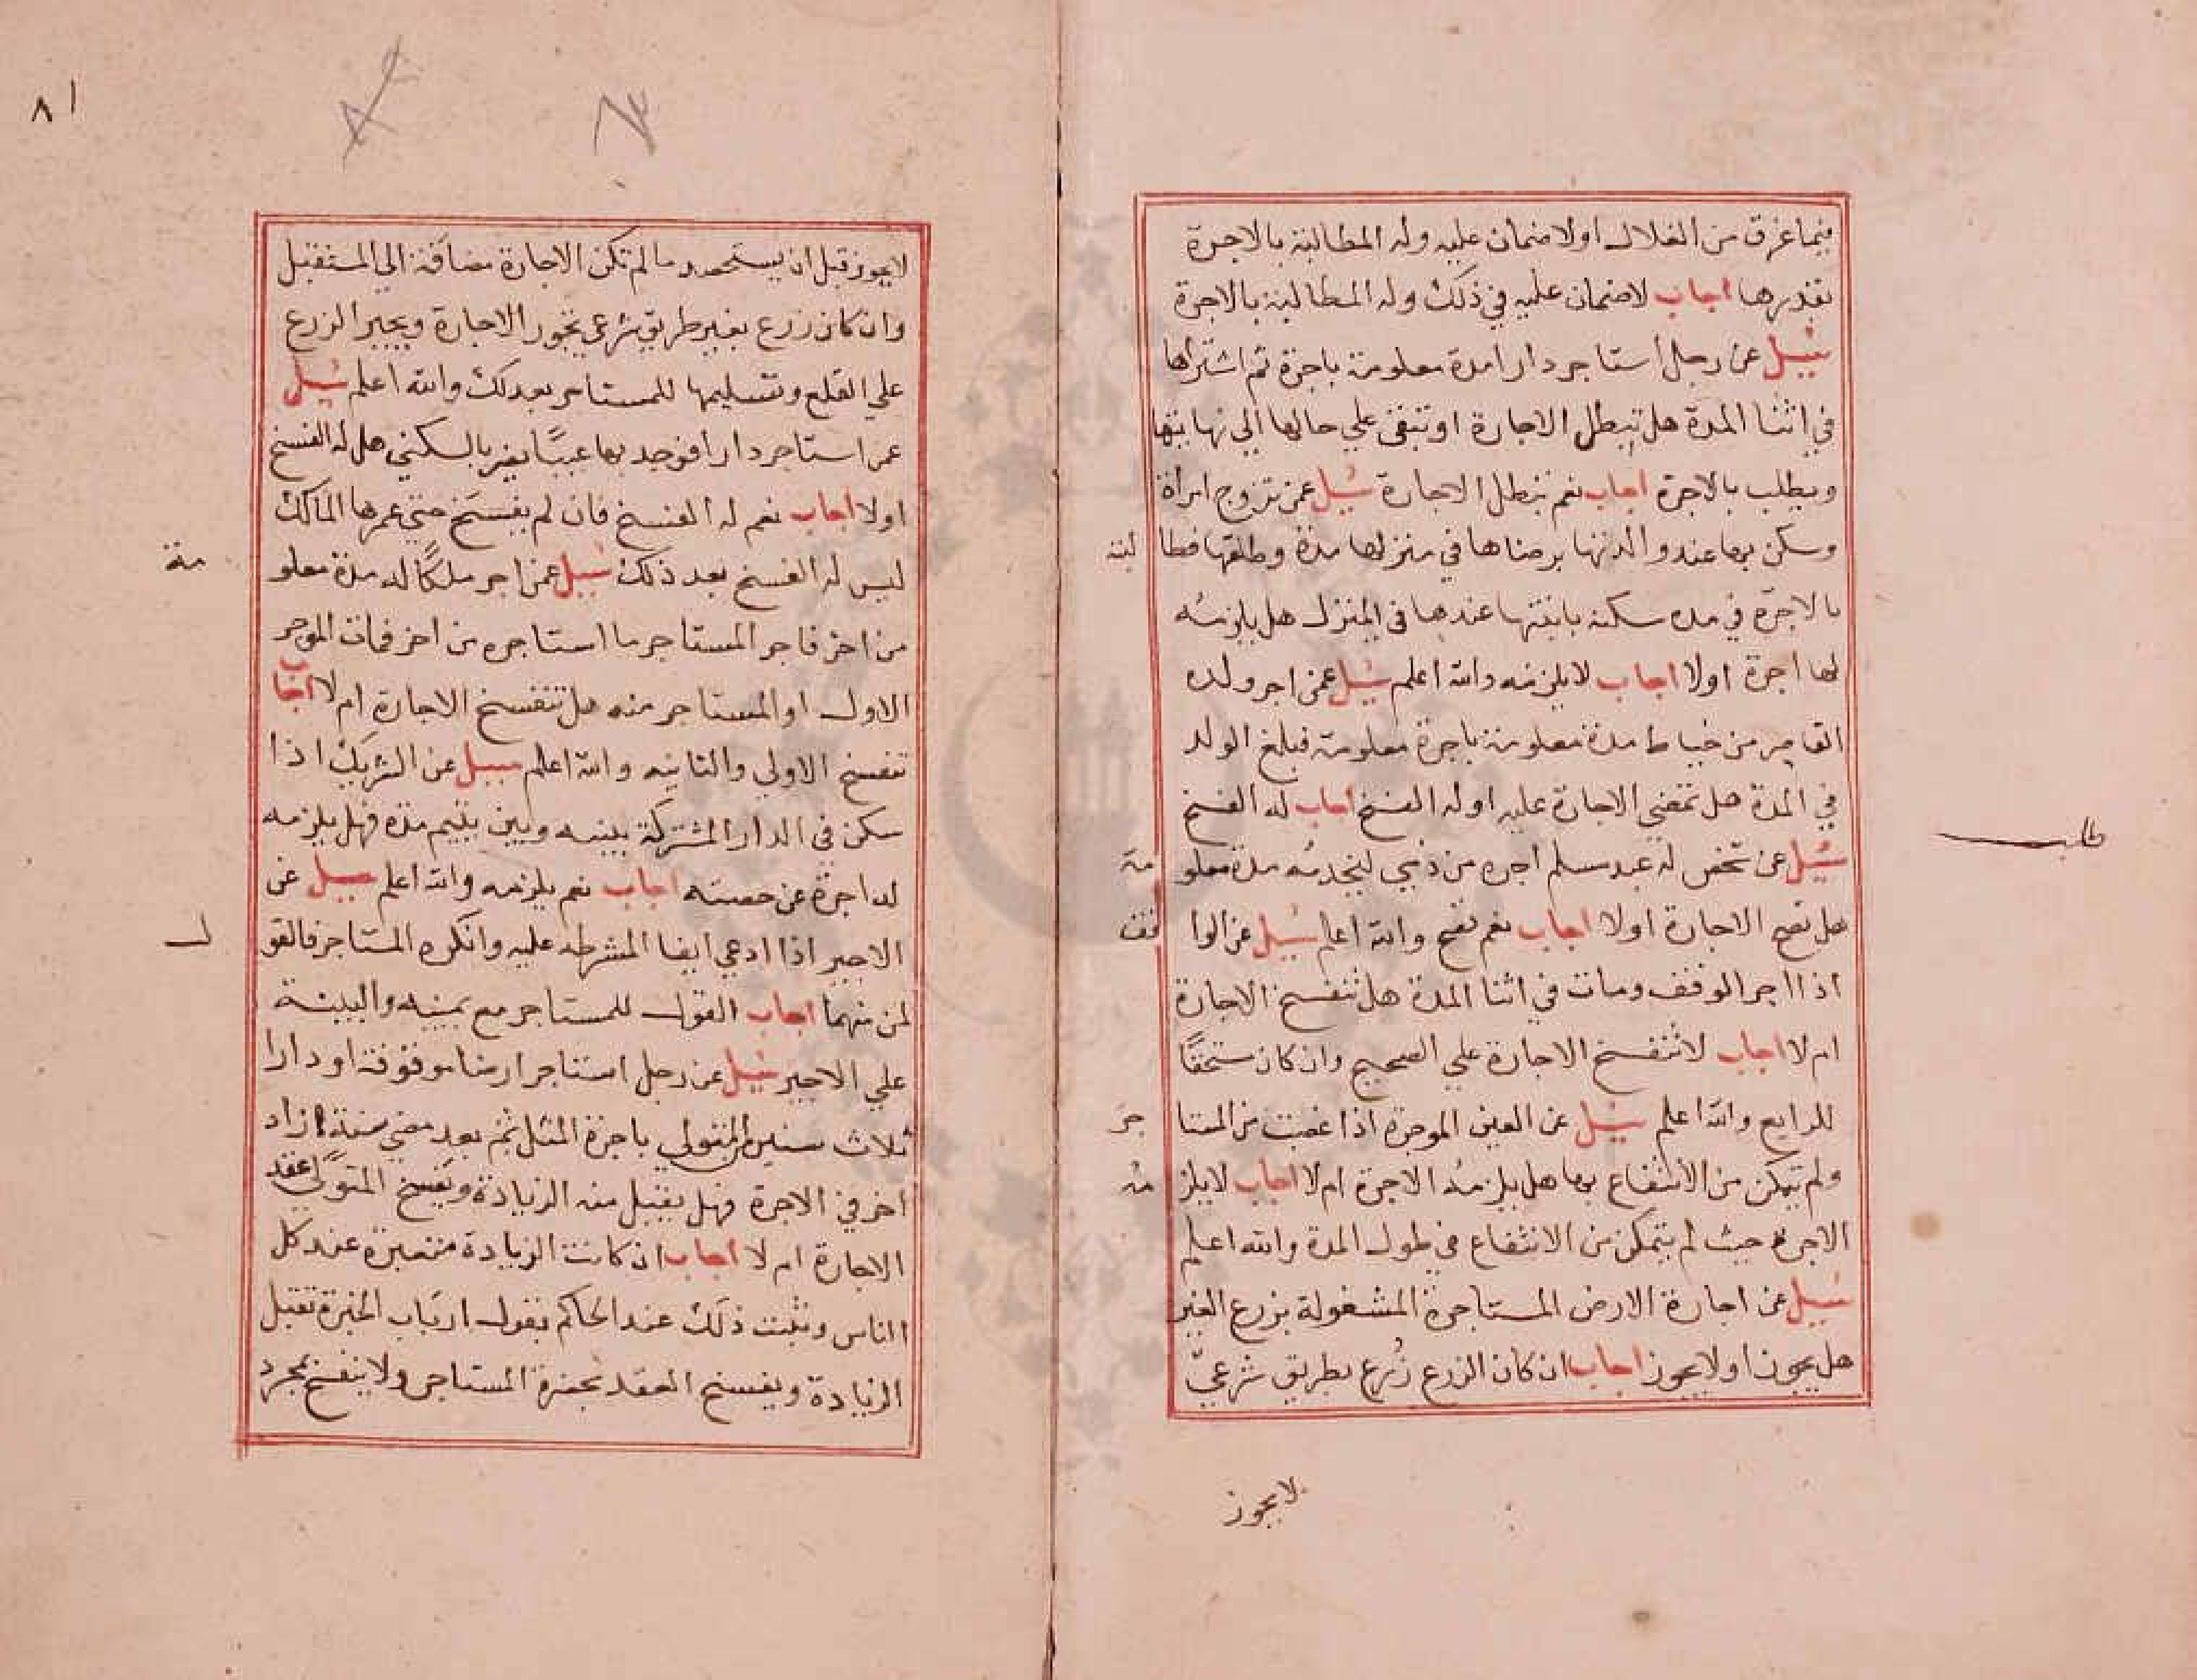 فيما غرق من الغلال او لا ضمان عليه وله المطالبة بالاجرة
بقدرها اجاب لا ضمان عليه في ذلك وله المطالبة بالاجرة
سُيل عن رجل استاجر دارا مدة معلومة باجرة ثم اشتراها
في اثنا المدة هل تبطل الاجارة او تبقي علي حالها الي نهايتها
ويطلب بالاجرة اجاب نعم تبطل الاجارة سُيل عمن تزوج امراة
وسكن بها عند والدتها برضاها في منزلها مدة وطلقها فطا لبته
بالاجرة في مدة سكنه بابنتها عندها في المنزل هل يلزمُه
لها اجرة او لا اجاب لا يلزمه والله اعلم سُيل عمن اجر ولده
القاصر من خياط مدة معلومة باجرة معلومة فبلغ الولد
في المدة هل تمضي الاجارة عليه او له الفسخ اجاب له الفسخ
سُيل عن شخص له عبد مسلم اجره من ذمي ليخدمُه مدة معلو مة
هل تصح الاجارة او لا اجاب نعم تصح والله اعلم سُيل عن الوا قف
اذا اجر الوقف ومات في اثنا المدة هل تنفسخ الاجارة
ام لا اجاب لا تنفسخ الاجارة علي الصحيح وان كان مستحقًا
للرايع والله اعلم سُيل عن العين الموجرة اذا غصبت من المستا جر
ولم يتمكن من الانتفاع بها هل يلزمُه الاجرة ام لا اجاب لا يلز مُه
الاجرة حيث لم يتمكن من الانتفاع في طول المدة والله اعلم
سُيل عن اجارة الارض المستاجرة المشغولة بزرع الغير
هل يجوز او لا يجوز اجاب ان كان الزرع زُرع بطريق شرعيّ
لا يجوز
طلب
٨١
٨٣
لا يجوز قبل ان يستحصد ما لم تكن الاجارة مضافة الي المستقبل
وان كان زرع بغير طريق شرعي تجوز الاجارة ويجبر الزرع
علي القلع وتسليمها للمستاجر بعد ذلك والله اعلم سُيل
عمن استاجر دارا فوجد بها عيبًا يضر بالسكني هل له الفسخ
او لا اجاب نعم له الفسخ فان لم يفسخ حتي عمرها المالك
ليس له الفسخ بعد ذلك سُيل عمن اجر ملكًا له مدة معلو مة
من اخر فاجر المستاجر ما استاجره من اخر فمات الموجر
الاول او المستاجر منه هل تنفسخ الاجارة ام لا اجاب
تنفسخ الاولي والثانيه والله اعلم سيل عن الشريك اذا
سكن في الدار المشتركة بينه وبين يتيم مدة فهل يلزمه
له اجرة عن حصته اجاب نعم يلزمه والله اعلم سيل عن
الاجير اذا ادعي ايفا المشرطه عليه وانكره المستاجر فالقو ل
لمن منهما اجاب القول للمستاجر مع يمينه والبينة
علي الاجير سُيل عن رجل استاجر ارضا موقوفة او دارا
ثلاث سنين من المتولي باجرة المثل ثم بعد مضي سنة زاد
اخر في الاجرة فهل يقبل منه الزيادة ويفسخ المتولي عقد
الاجارة ام لا اجاب ان كانت الزيادة معتبرة عند كل
الناس وثبت ذلك عند الحاكم بقول ارباب الخبرة تقبل
الزيادة ويفسخ العقد بحضرة المستاجر ولا ينفسخ بمجرد